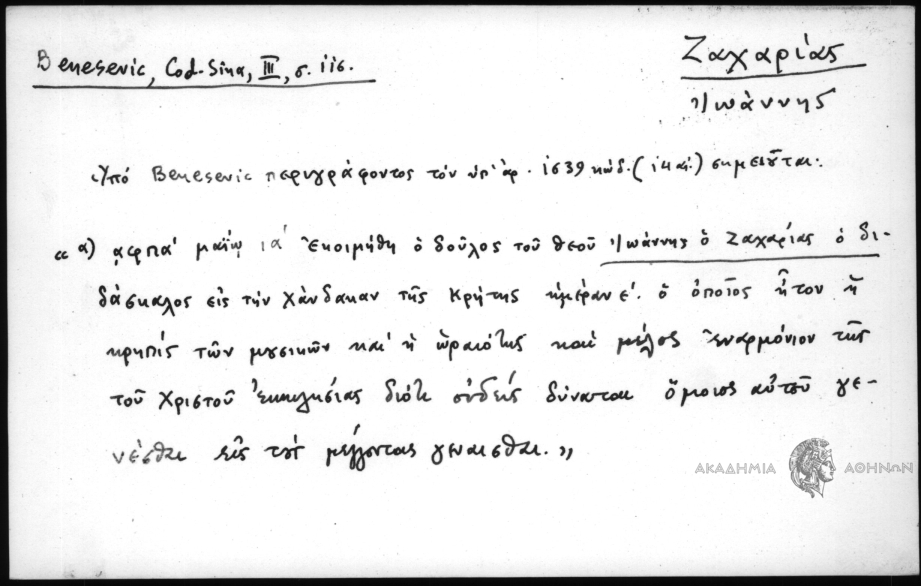 Benesevic, Cod-Sina, III, σ. 116.
Ζαχαρίας
Ἰωάννης
Ὑπό Benesevic περιγράφοντος τόν ὑπ' ἀρ. 1639 κώδ. σημειοῦται:
« α) αφπα' μαΐῳ ια' Ἐκοιμήθη ὁ δοῦλος τοῦ θεοῦ Ἰωάννης ὁ Ζαχαρίας ὁ δι-
δάσκαλος εἰς τήν χάνδακαν τῆς Κρήτης ἡμέραν ε'. ὁ ὁποῖος ἦτον ἡ
κρηπίς τῶν μουσικῶν καί ἡ ὡραιότης καί μέλος ἐναρμόνιον τῆς
τοῦ Χριστοῦ Ἐκκλησίας διότι οὐδείς δύναται ὅμοιος αὐτοῦ γε-
νέσθαι εἰς τούς μέλλοντας γεναισθαι. »
ΑΚΑΔΗΜΙΑ ΑΘΗΝΩΝ